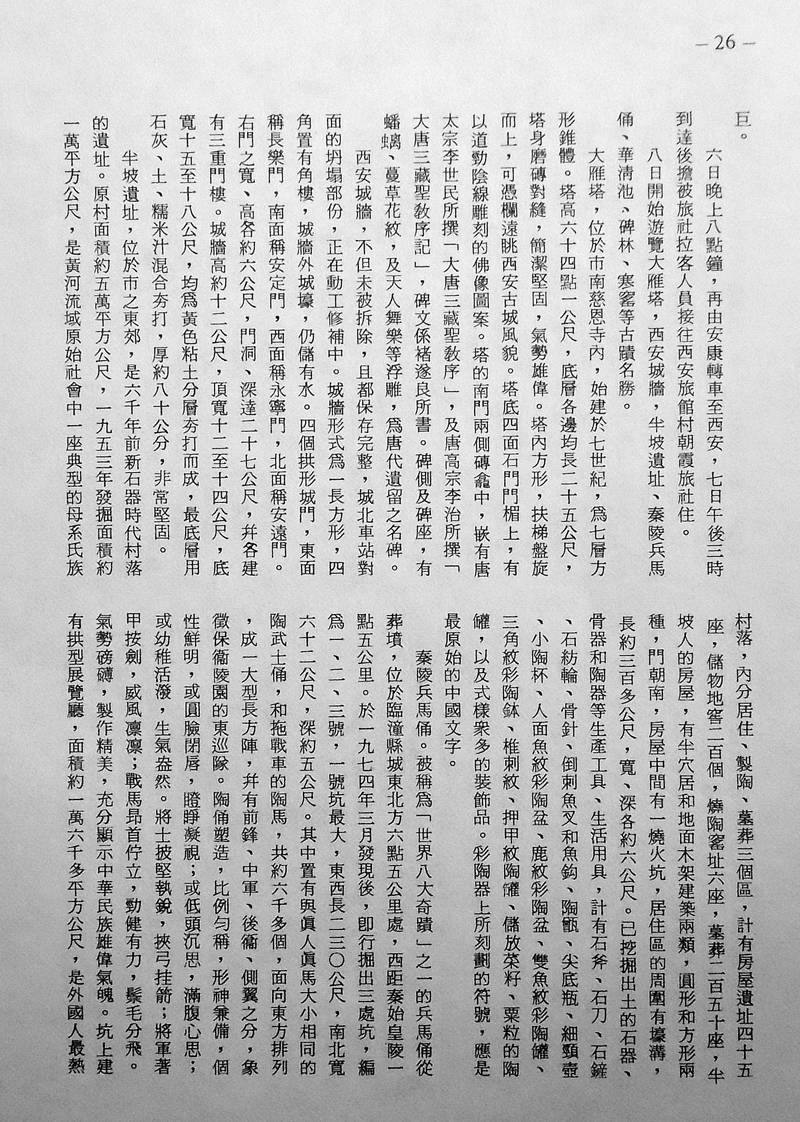 — 26 —
巨。
六日晚上八點鐘，再由安康轉車至西安，七日午後三時
到達後擔被旅社拉客人員接往西安旅館村朝霞旅社住。
八日開始遊覽大雁塔，西安城牆，半坡遺址、秦陵兵馬
俑、華清池、碑林、寒窰等古蹟名勝。
大雁塔，位於市南慈恩寺內，始建於七世紀，爲七層方
形錐體。塔高六十四點一公尺，底層各邊均長二十五公尺，
塔身磨磚對縫，簡潔堅固，氣勢雄偉。塔內方形，扶梯盤旋
而上，可憑欄遠眺西安古城風貌。塔底四面石門門楣上，有
以遒勁陰線雕刻的佛像圖案。塔的南門兩側磚龕中，嵌有唐
太宗李世民所撰「大唐三藏聖敎序」，及唐高宗李治所撰「
大唐三藏聖敎序記」，碑文係褚遂良所書。碑側及碑座，有
蟠螭、蔓草花紋，及天人舞樂等浮雕，爲唐代遺留之名碑。
西安城牆，不但未被拆除，且都保存完整，城北車站對
面的坍塌部份，正在動工修補中。城牆形式爲一長方形，四
角置有角樓，城牆外城壕，仍儲有水。四個拱形城門，東面
稱長樂門，南面稱安定門，西面稱永寧門，北面稱安遠門。
右門之寬、高各約六公尺，門洞、深達二十七公尺，幷各建
有三重門樓。城牆高約十二公尺，頂寬十二至十四公尺，底
寬十五至十八公尺，均爲黃色粘土分層夯打而成，最底層用
石灰、土、糯米汁混合夯打，厚約八十公分，非常堅固。
半坡遺址，位於市之東郊，是六千年前新石器時代村落
的遺址。原村面積約五萬平方公尺，一九五三年發掘面積約
一萬平方公尺，是黃河流域原始社會中一座典型的母系氏族
村落，內分居住、製陶、墓葬三個區，計有房屋遺址四十五
座，儲物地窖二百個，燒陶窰址六座，墓葬二百五十座，半
坡人的房屋，有半穴居和地面木架建築兩類，圓形和方形兩
種，門朝南，房屋中間有一燒火坑，居住區的周圍有壕溝，
長約三百多公尺，寬、深各約六公尺。已挖掘出土的石器、
骨器和陶器等生產工具、生活用具，計有石斧、石刀、石鏟
、石紡輪、骨針、倒刺魚叉和魚鈎、陶甑、尖底瓶、細頸壺
、小陶杯、人面魚紋彩陶盆、鹿紋彩陶盆、雙魚紋彩陶罐、
三角紋彩陶缽、椎刺紋、押甲紋陶罐、儲放菜籽、粟粒的陶
罐，以及式樣衆多的裝飾品。彩陶器上所刻劃的符號，應是
最原始的中國文字。
秦陵兵馬俑。被稱爲「世界八大奇蹟」之一的兵馬俑從
葬墳，位於臨潼縣城東北方六點五公里處，西距秦始皇陵一
點五公里。於一九七四年三月發現後，卽行掘出三處坑，編
爲一、二、三號，一號坑最大，東西長二三〇公尺，南北寬
六十二公尺，深約五公尺。其中置有與眞人眞馬大小相同的
陶武士俑，和拖戰車的陶馬，共約六千多個，面向東方排列
，成一大型長方陣，幷有前鋒、中軍、後衞、側翼之分，象
徵保衞陵園的東巡隊。陶俑塑造，比例勻稱，形神兼備，個
性鮮明，或圓臉閉唇，瞪睜凝視；或低頭沉思，滿腹心思；
或幼稚活潑，生氣盎然。將士披堅執銳，挾弓挂箭；將軍著
甲按劍，威風凜凜；戰馬昂首佇立，勁健有力，鬃毛分飛。
氣勢磅礴，製作精美，充分顯示中華民族雄偉氣魄。坑上建
有拱型展覽廳，面積約一萬六千多平方公尺，是外國人最熱